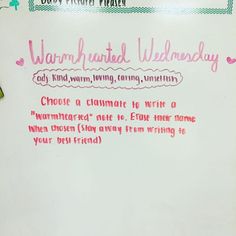 Baby Pictures Please!
Warmhearted Wednesday
adj. Kind, warm, loving, caring, unselfish
Choose a classmate to write a
"Warmhearted" note to. Erase their name
When chosen (Stay away from writing to
your best friend)